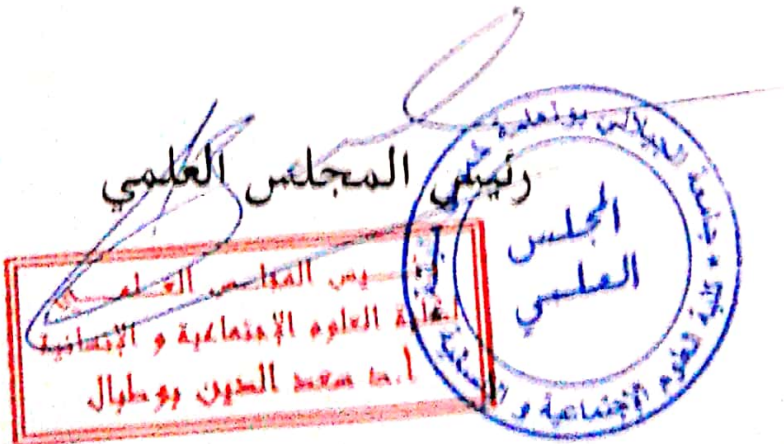 رئيس المجلس العلمي
رئيس المجلس العلمي
لكلية العلوم الإجتماعية و الإنسانية
أ.د سعد الدين بوطبال
المجلس
العلمي
جامعة الجيلالي بونعامة
كلية العلوم الإجتماعية و الإنسانية